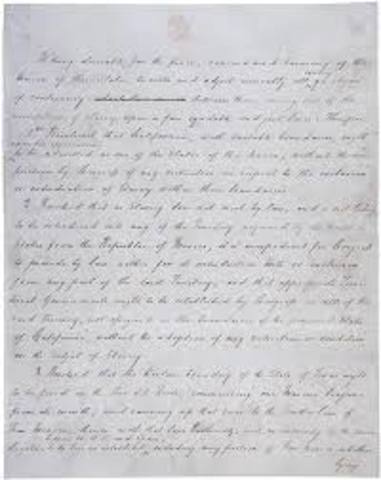 It being desirable, for the peace, concord and harmony of the
Union of these States to settle and adjust amicably all questions
of controversy between them arising out of the
institution of slavery, upon a fair equitable and just basis: Therefore
1st Resolved that California, with suitable boundaries, ought
upon her application
to be admitted as one of the States of this Union, without the
by Congress of any restriction in respect to the exclusion
or introduction of Slavery within those boundaries
2 Resolved that as Slavery does not exist by law, and is not likely
to be introduced into any of the Territory acquired by the United
States from the Republic of Mexico, it is inexpedient for Congress
to provide by law either for its introduction into or exclusion
from any part of the said Territory, and that appropriate Terri-
torial Governments ought to be established by Congress in all of the
said Territory, not assigned as the boundaries of the proposed State
of California, without the adoption of any restriction or condition
on the subject of Slavery
3 Resolved that the Western boundary of the State of Texas ought
to be fixed on the Rio del Norte, commencing one Marine league
from its mouth, and running up that river to the Southern line of
New Mexico, thence with that line Eastwardly, and so continuing in the same
direction to the line as established, excluding any portion of New Mexico whether
lying